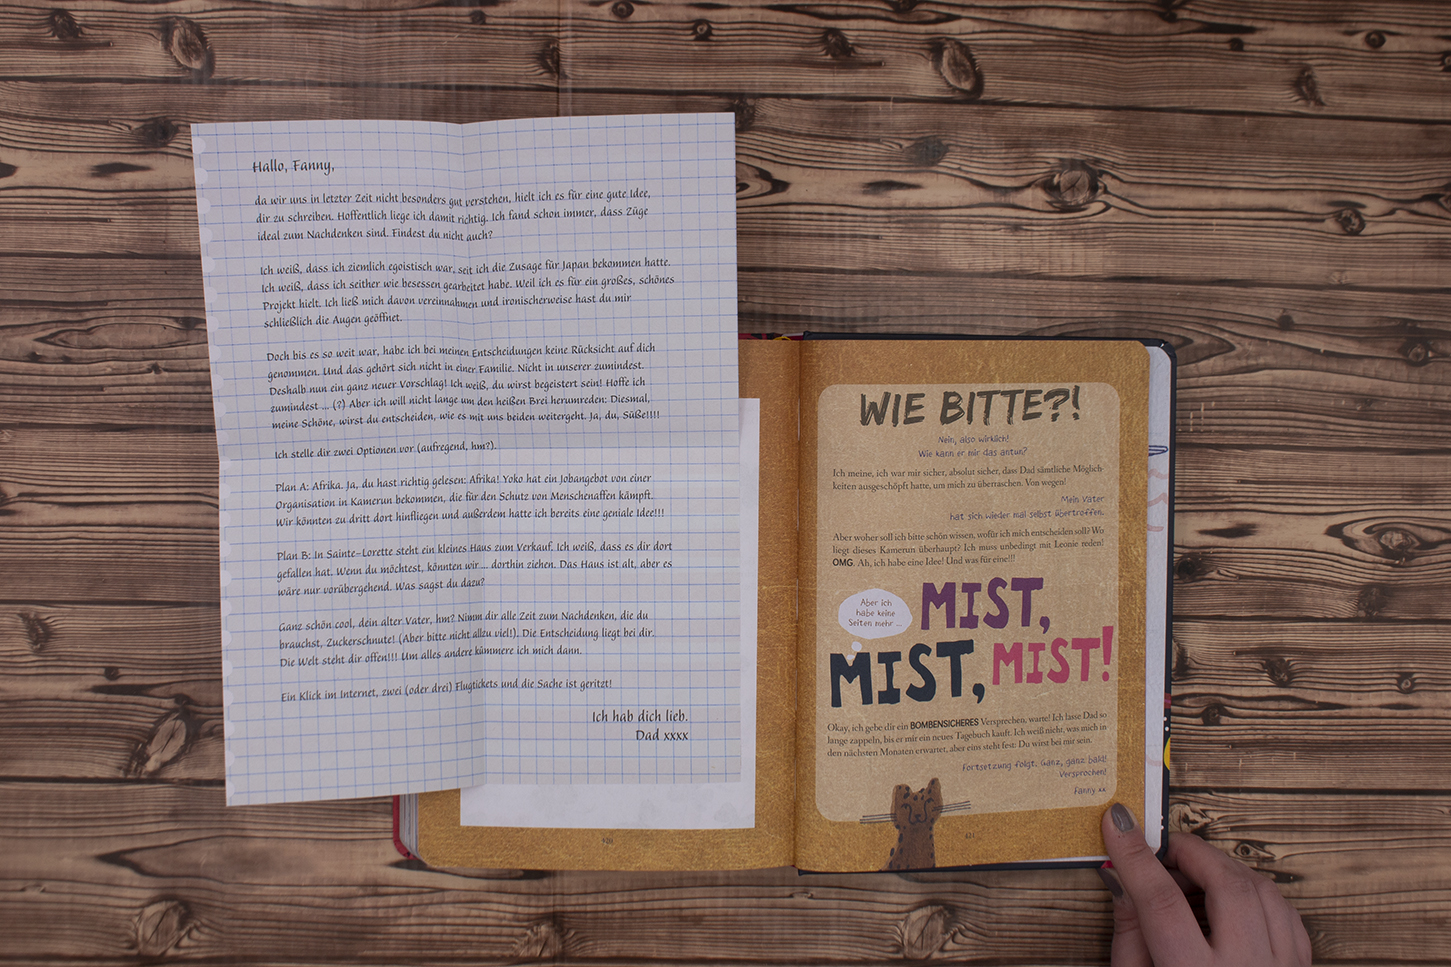 Hallo, Fanny,
da wir uns in letzter Zeit nicht besonders gut verstehen, hielt ich es für eine gute Idee,
dir zu schreiben. Hoffentlich liege ich damit richtig. Ich fand schon immer, dass Züge
ideal zum Nachdenken sind. Findest du nicht auch?
Ich weiß, dass ich ziemlich egoistisch war, seit ich die Zusage für Japan bekommen hatte.
Ich weiß, dass ich seither wie besessen gearbeitet habe. Weil ich es für ein großes, schönes
Projekt hielt. Ich ließ mich davon vereinnahmen und ironischerweise hast du mir
schließlich die Augen geöffnet.
Doch bis es so weit war, habe ich bei meinen Entscheidungen keine Rücksicht auf dich
genommen. Und das gehört sich nicht in einer Familie. Nicht in unserer zumindest.
Deshalb nun ein ganz neuer Vorschlag! Ich weiß, du wirst begeistert sein! Hoffe ich
zumindest ... (?) Aber ich will nicht lange um den heißen Brei herumreden: Diesmal,
meine Schöne, wirst du entscheiden, wie es mit uns beiden weitergeht. Ja, du, Süße!!!!
Ich stelle dir zwei Optionen vor (aufregend, hm?).
Plan A: Afrika. Ja, du hast richtig gelesen: Afrika! Yoko hat ein Jobangebot von einer
Organisation in Kamerun bekommen, die für den Schutz von Menschenaffen kämpft.
Wir könnten zu dritt dort hinfliegen und außerdem hatte ich bereits eine geniale Idee!!!
Plan B: In Sainte-Lorette steht ein kleines Haus zum Verkauf. Ich weiß, dass es dir dort
gefallen hat. Wenn du möchtest, könnten wir ... dorthin ziehen. Das Haus ist alt, aber es
wäre nur vorübergehend. Was sagst du dazu?
Ganz schön cool, dein alter Vater, hm? Nimm dir alle Zeit zum Nachdenken, die du
brauchst, Zuckerschnute! (Aber bitte nicht allzu viel!). Die Entscheidung liegt bei dir.
Die Welt steht dir offen!!! Um alles andere kümmere ich mich dann.
Ein Klick im Internet, zwei (oder drei) Flugtickets und die Sache ist geritzt!
Ich hab dich lieb.
Dad xxxx
WIE BITTE?!
Nein, also wirklich!
Wie kann er mir das antun?
Ich meine, ich war mir sicher, absolut sicher, dass Dad sämtliche Möglich-
keiten ausgeschöpft hatte, um mich zu überraschen. Von wegen!
Mein Vater
hat sich wieder mal selbst übertroffen.
Aber woher soll ich bitte schön wissen, wofür ich mich entscheiden soll? Wo
liegt dieses Kamerun überhaupt? Ich muss unbedingt mit Leonie reden!
OMG. Ah, ich habe eine Idee! Und was für eine!!!
Aber ich
habe keine
Seiten mehr ...
MIST,
MIST, MIST!
Okay, ich gebe dir ein BOMBENSICHERES Versprechen, warte! Ich lasse Dad so
lange zappeln, bis er mir ein neues Tagebuch kauft. Ich weiß nicht, was mich in
den nächsten Monaten erwartet, aber eins steht fest: Du wirst bei mir sein.
Fortsetzung folgt. Ganz, ganz bald!
Versprochen!
Fanny xx